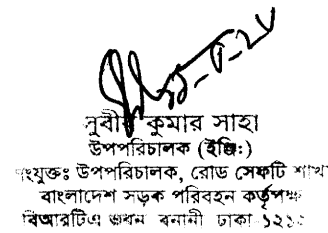 সুবীর কুমার সাহা
উপপরিচালক (ইঞ্জিঃ)
সংযুক্তঃ উপপরিচালক, রোড সেফটি শাখা
বাংলাদেশ সড়ক পরিবহন কর্তৃপক্ষ
বিআরটিএ ভবন বনানী ঢাকা-১২১২